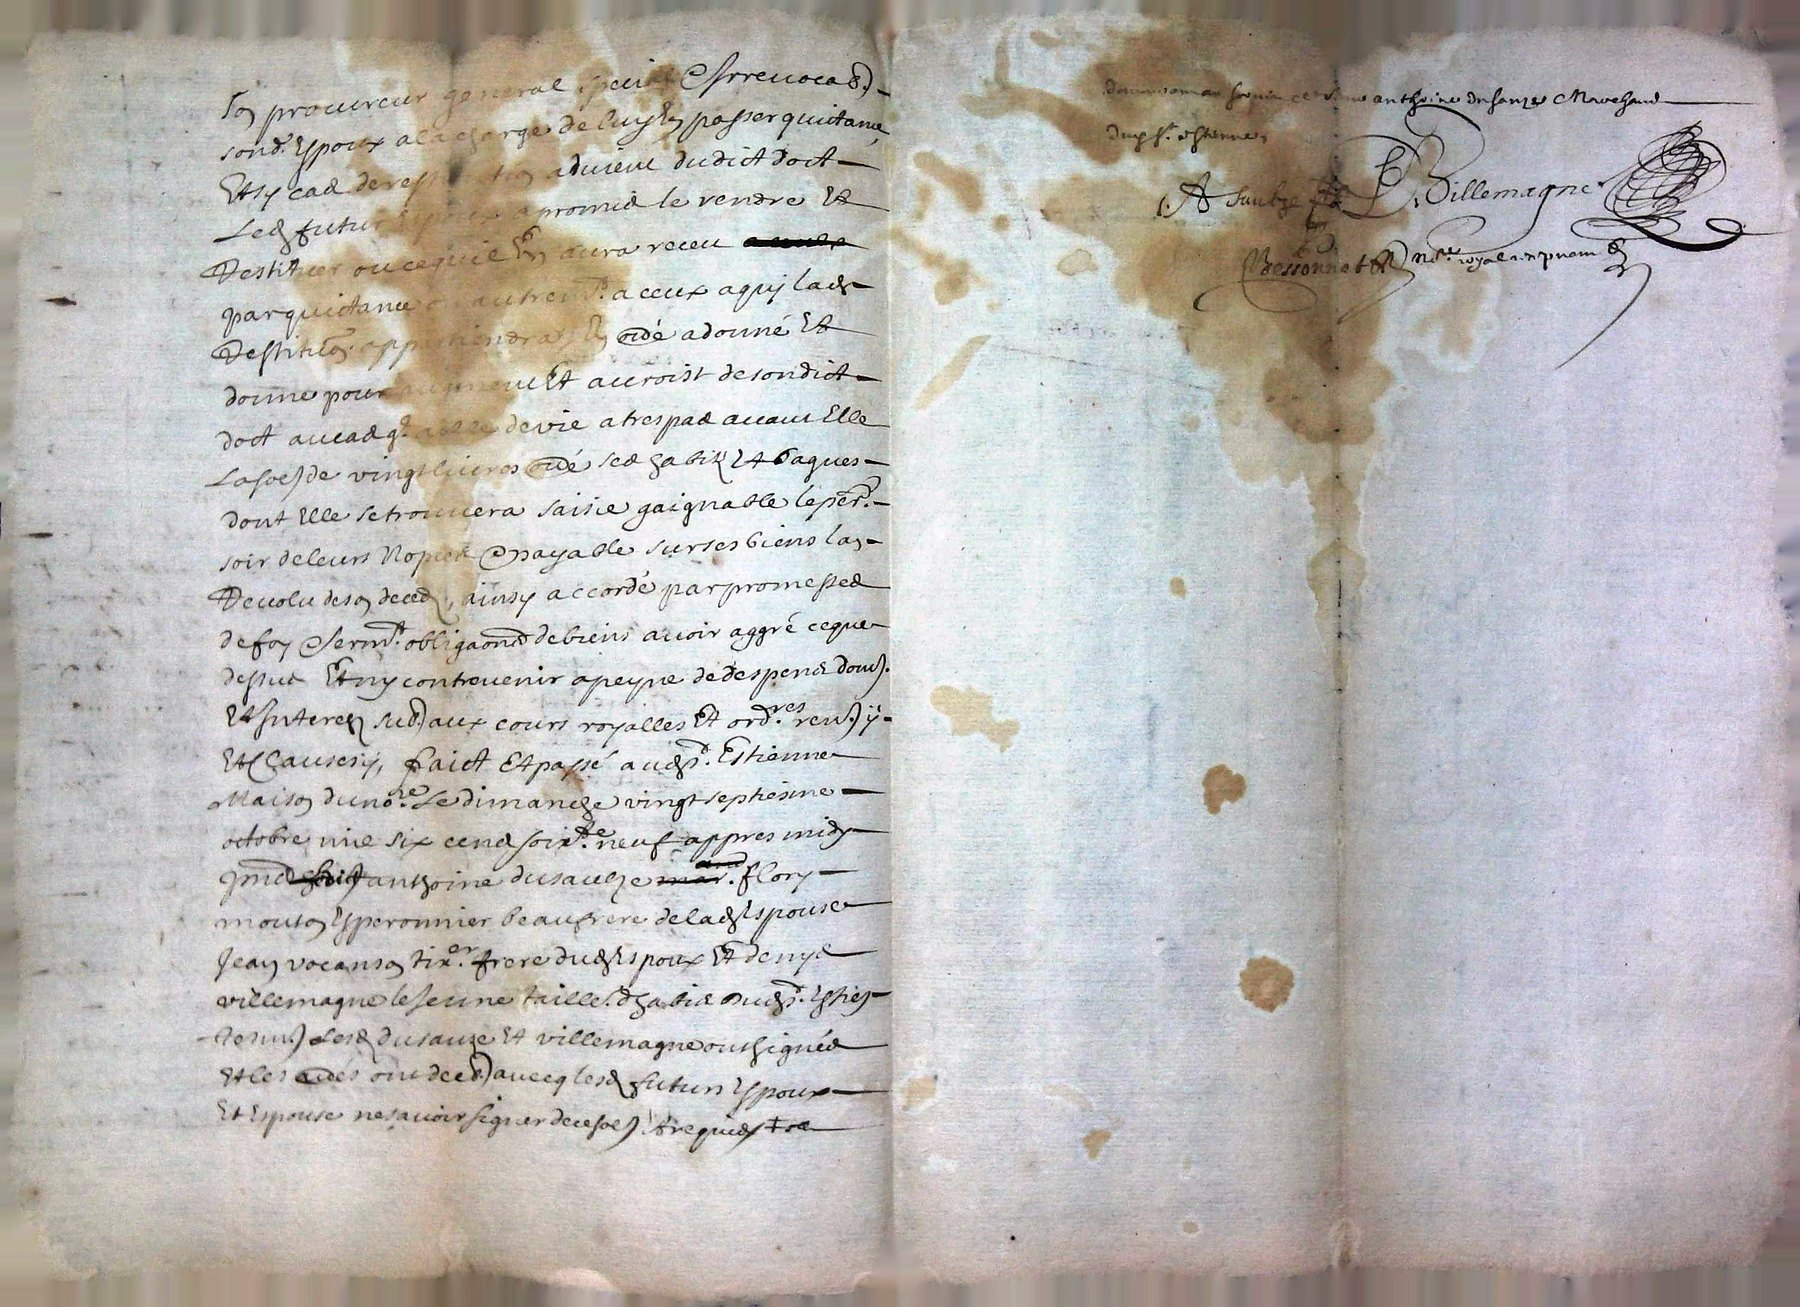 son procureur general special & Irrevocab)
sond. Espoux a la charge de luy En passer quictance
Et sy cas de restitution advient dudict doct
Led futur Espoux a promis le rendre Et
Restituer ou ce quil En aura receu
par quictance ou autremt. a ceux a quy lad
Restituon appartiendra En oultre a donné Et
donne pour augment Et accroist de sondict
doct au cas qe. elle de vie a trespas avant Elle
La soe) de vingt livres oultre ses habitz Et bagues
dont Elle se trouvera saisie gaignable le per.
soir de leurs Nopces & payable sur ses biens lan
Revolu de son deced, ainsy accordé par promesses
de foy & sermt. obligaons de biens avoir aggré ce que
dessus Et ny contrevenir a peyne de despens dom).
Et Interez sub) aux cours royalles Et ordres. ren) y
Et Clauses y, faict Et passé aud St. Estienne
Maison du nore. Le dimanche vingt septiesme
octobre mil six cens soixte. neuf appres midy
pnts anthoine dusauze flory
mouton Esperonnier beaufrere de lad Espouse
Jean vocanson tixer. frere dud Espoux Et denys
villemagne le Jeune taille. habis dud St. Estien
Lesd dusauze Et villemagne ont signés
Et les aultres ont decl) avecq lesd futurs Espoux
Et Espouse ne savoir signer de ce so) & requis
anthoine dusauze Marchand
dud St. estienne
A Sauze D. Villemagne
Bessonnet Nore royal